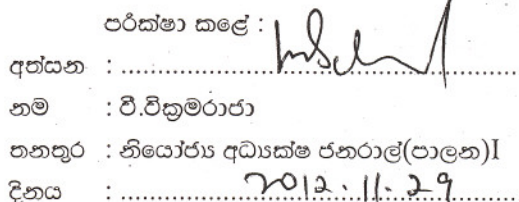 පරීක්ෂා කළේ :
අත්සන : ....................
නම : වී.වික්‍රමරාජා
තනතුර : නියෝජ්‍ය අධ්‍යක්ෂ ජනරාල්(පාලන)I
දිනය : 2012.11.29